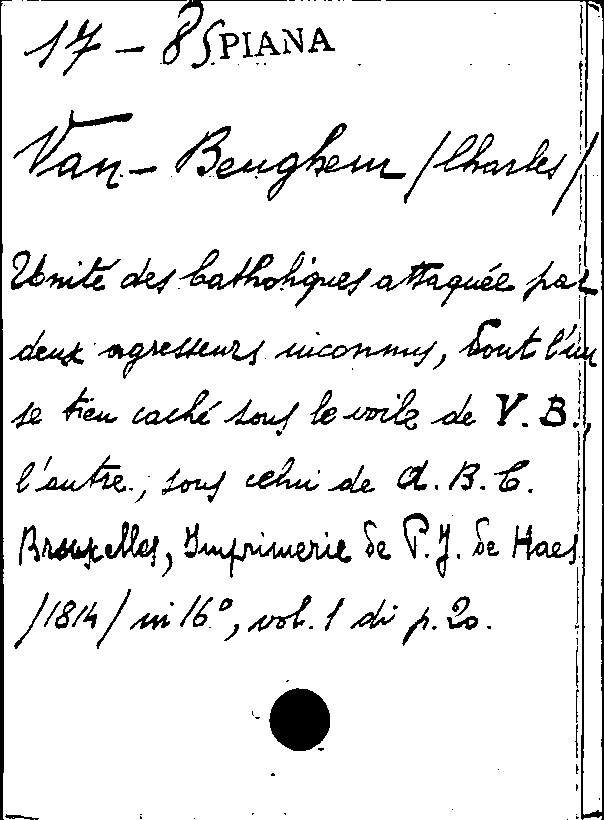 17 - 8 SPIANA
Van-Beughem /Charles/
Unité des Catholiques attaquée par
deux agresseurs inconnus, dont l'un
se tien caché sous le voile de V. B.,
l'autre, sous celui de A. B. C.
Bruxelles, Imprimerie de P. J. de Haes
/1814/ in 16°, vol. 1 di p. 20.